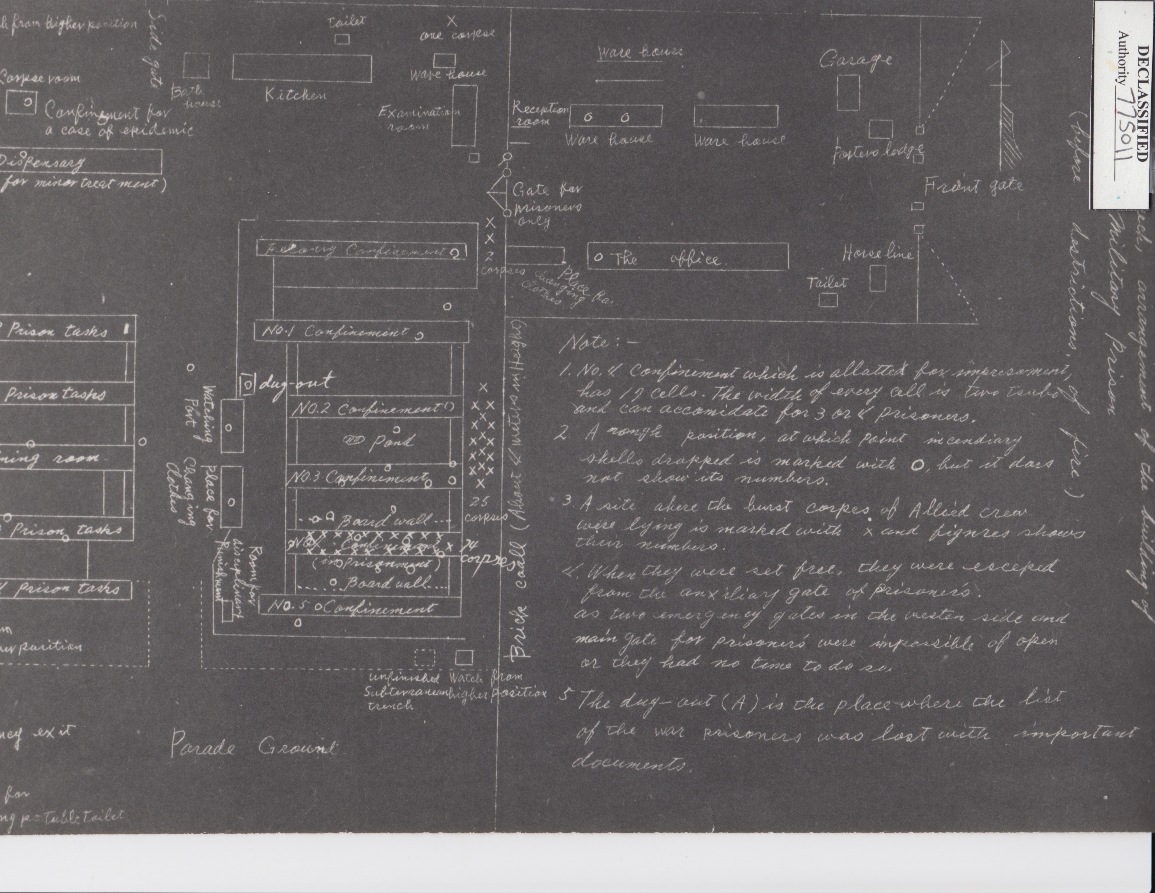 DECLASSIFIED
Authority 775011
arrangement of the building of
Military Prison
(before destrictions, of fire)
h from higher position
Side gate
Toilet
x
one corpse
Ware house
Corpse room
Confingment for
a case of epidemic
Bath
house
Kitchen
Ware house
Examination
room
Reception
room
Ware house
Ware house
Garage
Porters lodge
Front gate
Dispensary
for minor treatment)
Gate for
prisoners
only
x
x
2
corpses
Confinement
Place for
changing
clothes
The office
Horse line
Toilet
Prison tasks
Prison tasks
ning room
Prison tasks
Prison tasks
NO.1 Confinement
dug-out
NO.2 Confinement
Pond
NO.3 Confiniment
Board wall
x x x x x x x x x x x x 74
corpses
(imprisonment)
Board wall
NO.5 Confinement
Watching
Port
Place for
Changing
Clothes
Room for
airoplament
Punishment
25
corpses
Brick wall (About 4 metros in Height)
unfinished
Subterranean
trench
Watch from
higher position
Parade Ground
ncy exit
for
Note:-
1. No. 4 Confinement which is allatted for impresonment,
has 17 cells. The width of every call is two tsubo
and can accomidate for 3 or 4 prisoners.
2. A rough position, at which point incendiary
shells dropped is marked with O, but it does
not show its numbers.
3. A site where the burst corpses of Allied crew
were lying is marked with x and figures shows
their numbers.
4. When they were set free, they were esceped
from the auxiliary gate of prisoners.
as two emergency gates in the westen side and
main gate for prisoners were impossible of open
or they had no time to do so.
5 The dug-out (A) is the place where the list
of the war prisoners was lost with important
documents.